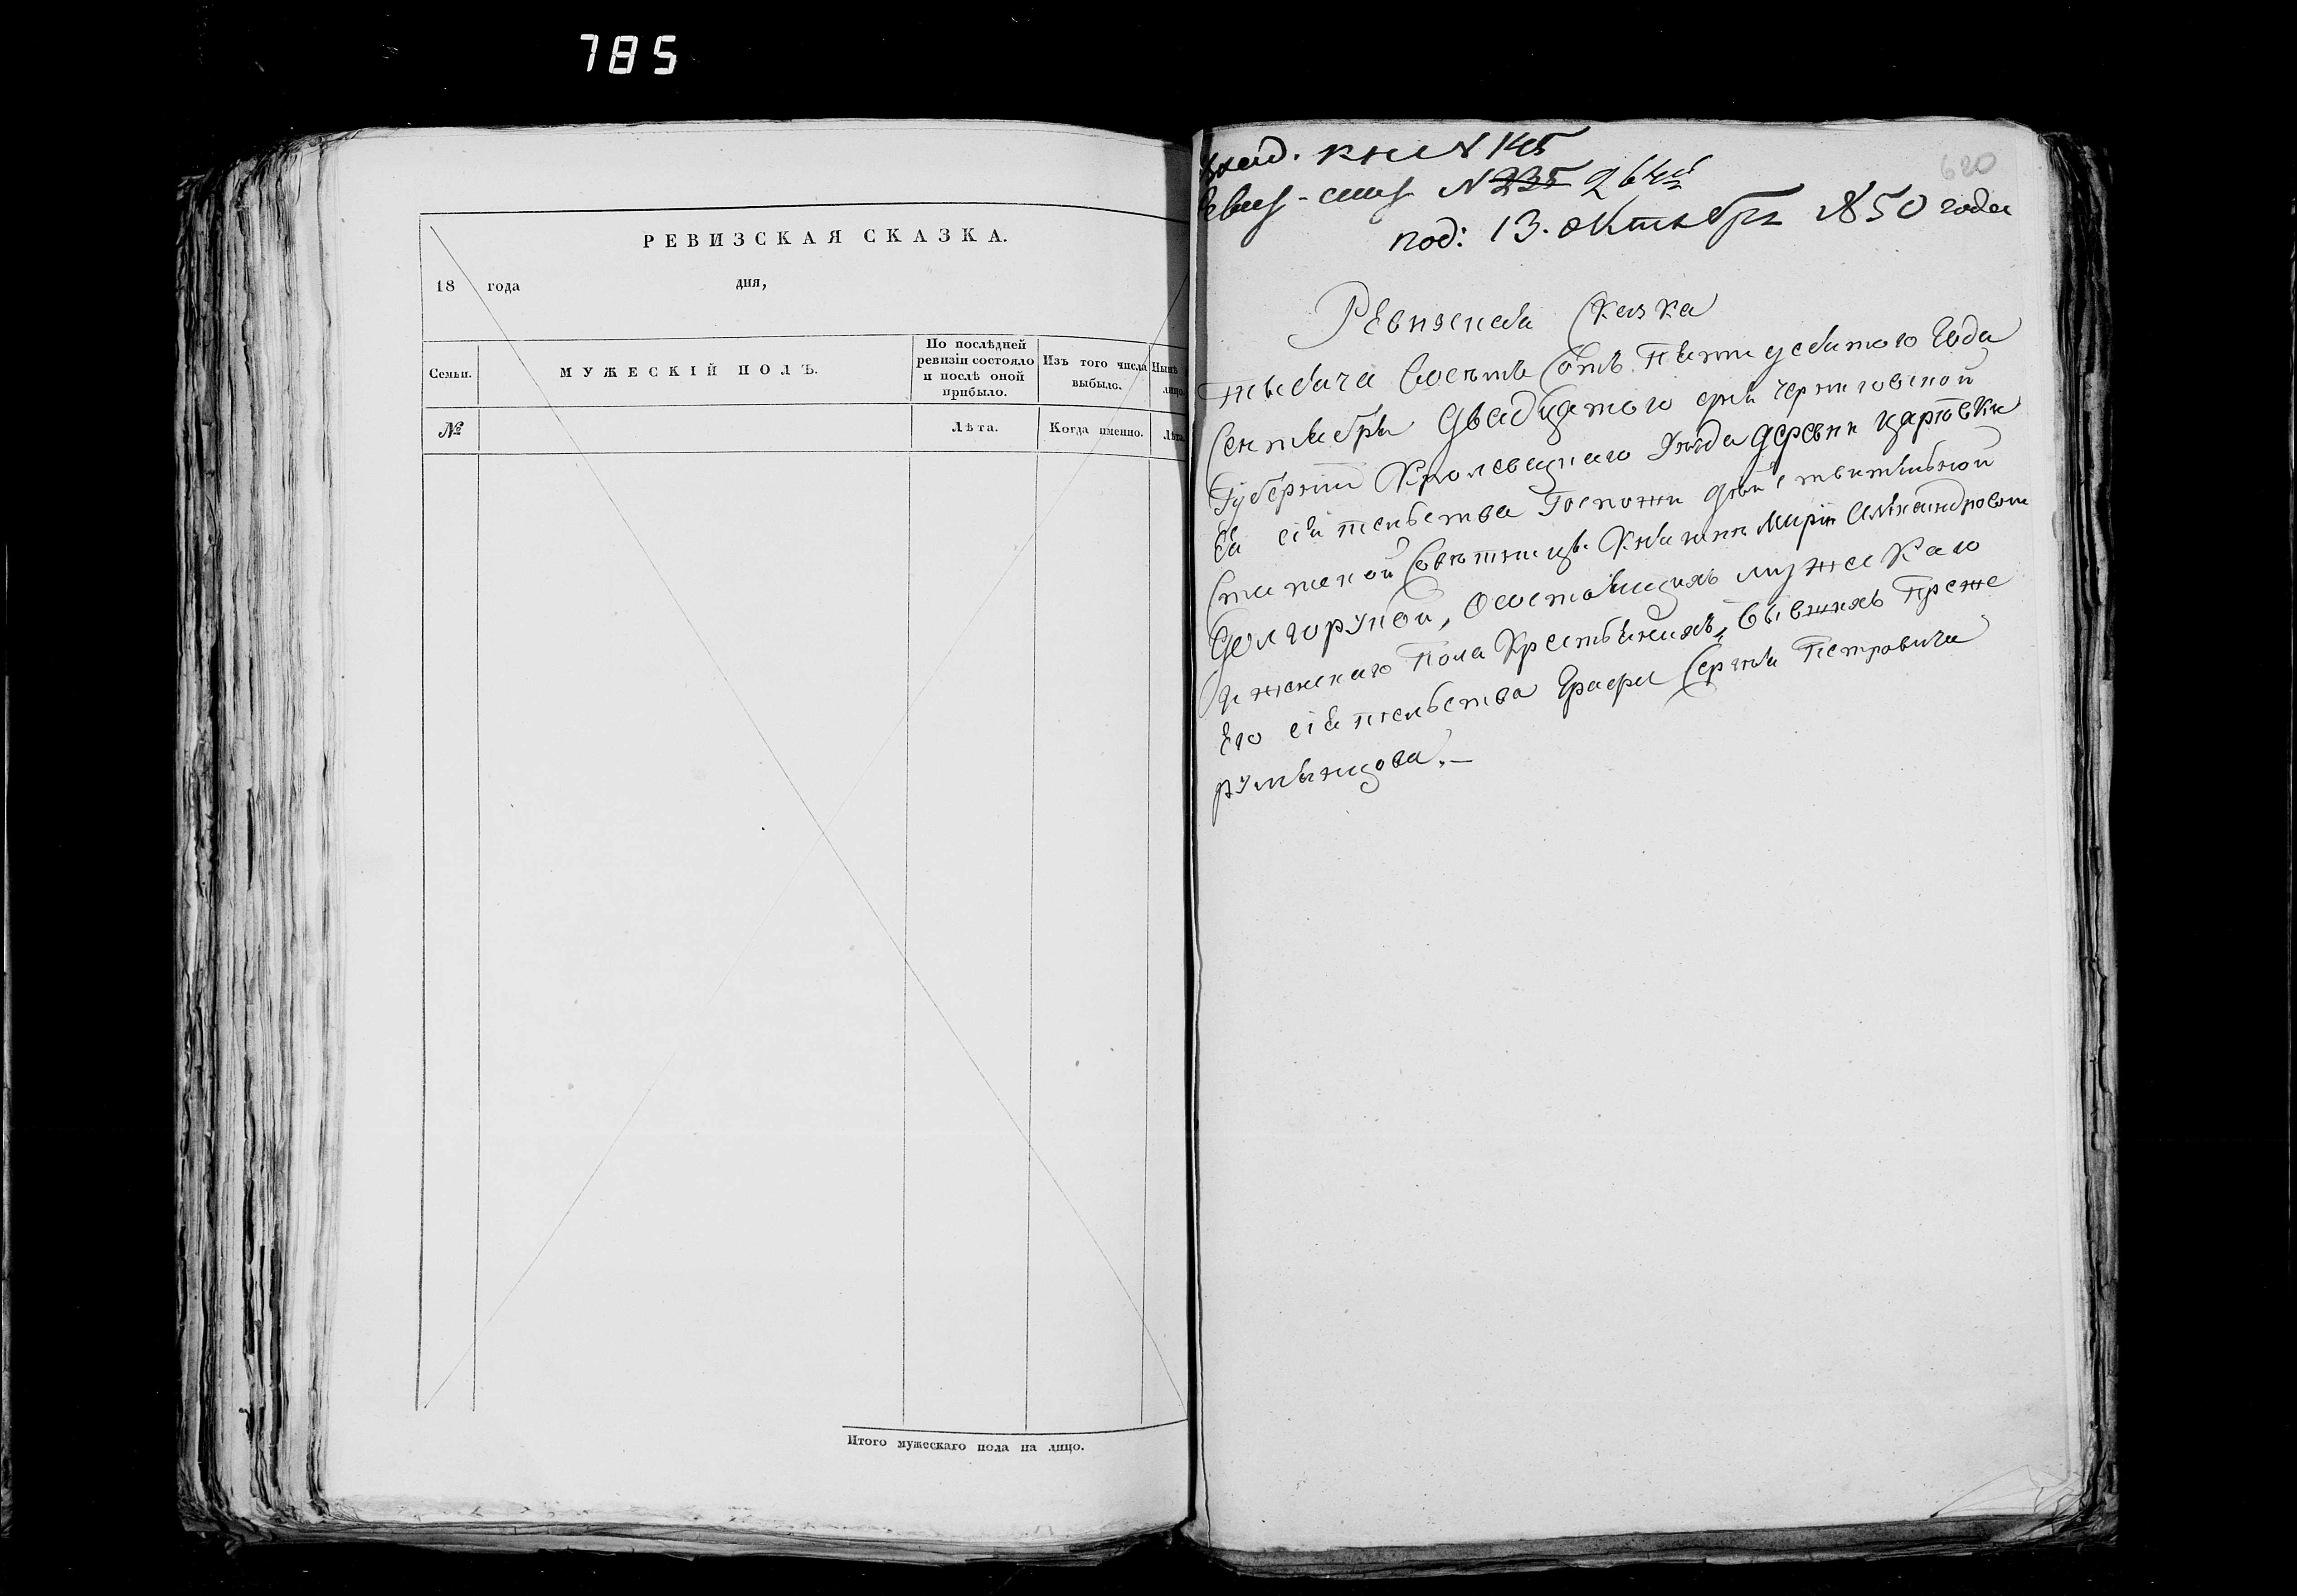 785
РЕВИЗСКАЯ СКАЗКА.
18 года дня,
Семьи.
МУЖЕСКІЙ ПОЛЪ.
По послѣдней
ревизіи состояло
и послѣ оной
прибыло.
Изъ того числа
выбыло.
Нынѣ
лицо
№
Лѣта.
Когда именно.
Лѣта
Итого мужескаго пола на лицо.
620
вход. кни № 145
№ 235 264й
под: 13. октября 1850 года
Ревизская Сказка
тысяча восемь сотъ Пятидесятого Года
Сентября Двадцятого дня Черниговской
Губерніи Кролевецкаго Уѣзда деревни Царговки
Ея сіятельства Госпожи дѣйствительной
Статской Совѣтници Княгини Маріи Александровны
Долгорукой, О состоящихъ мужескаго
и женскаго Пола Крестьянахъ, бывшихъ Преже
Его сіятельства Графа Сергѣя Петровича
румянцова.—